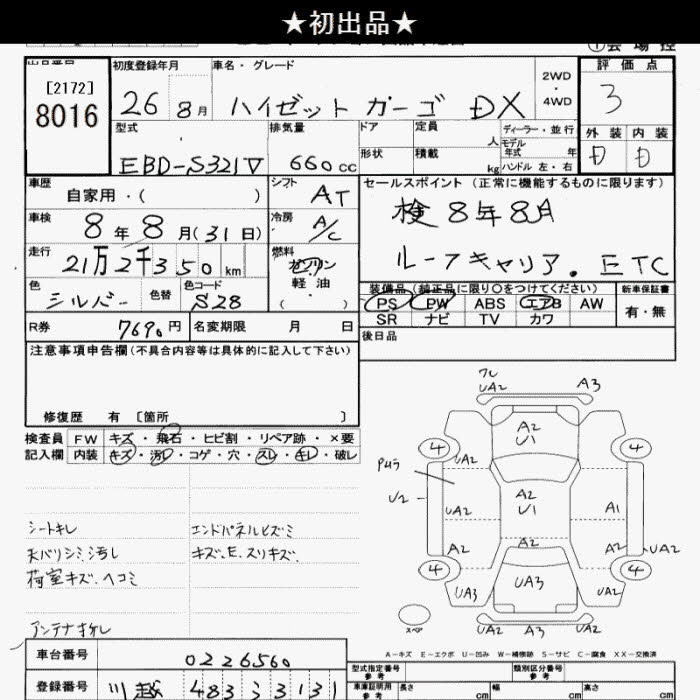 ★初出品★
[2172]
8016
初度登録年月
26 8月
車名・グレード
ハイゼット カーゴ DX
2WD
・
4WD
評価点
3
外装 内装
D D
型式
EBD-S321V
排気量
660cc
ドア
定員
人
形状
積載
kg
ディーラー・並行
モデル
年式 年
ハンドル 左・右
車歴
自家用・( )
シフト
AT
車検
8年8月(31日)
冷房
A/C
走行
21万2千350km
燃料
ガソリン
軽油
( ・ )
色
シルバー
色替
色コード
S28
R券
7690円
名変期限 月 日
セールスポイント(正常に機能するものに限ります)
検8年8月
ルーフキャリア. ETC
装備品(純正品に限り○をつけてください)
PS PW ABS エアB AW
SR ナビ TV カワ
新車保証書
有・無
後日品
注意事項申告欄(不具合内容等は具体的に記入して下さい)
修復歴 有 [箇所 ]
検査員 FW キズ・飛石・ヒビ割・リペア跡・×要
記入欄 内装 キズ・汚レ・コゲ・穴・スレ・キレ・破レ
シートキレ
天バリシミ汚レ
荷室キズ.ヘコミ
アンテナオレ
エンドパネルヒズミ
キズ.E.スリキズ.
ワレ
UA2 A3
A2
U1
4 4
UA2
Pムラ
U2
UA2
A2
U1
A1
A2 A2 A2 UA2
4 4
UA3 UA3 UA2
スペア
UA2 A3 UA2
A-キズ E-エクボ U-凹み W-補修跡 S-サビ C-腐食 XX-交換済
車台番号
0226560
登録番号
川越 483 う 3131
型式指定番号
参考
類別区分番号
参考
車庫証明用
参考
長さ cm
幅 cm
高さ cm